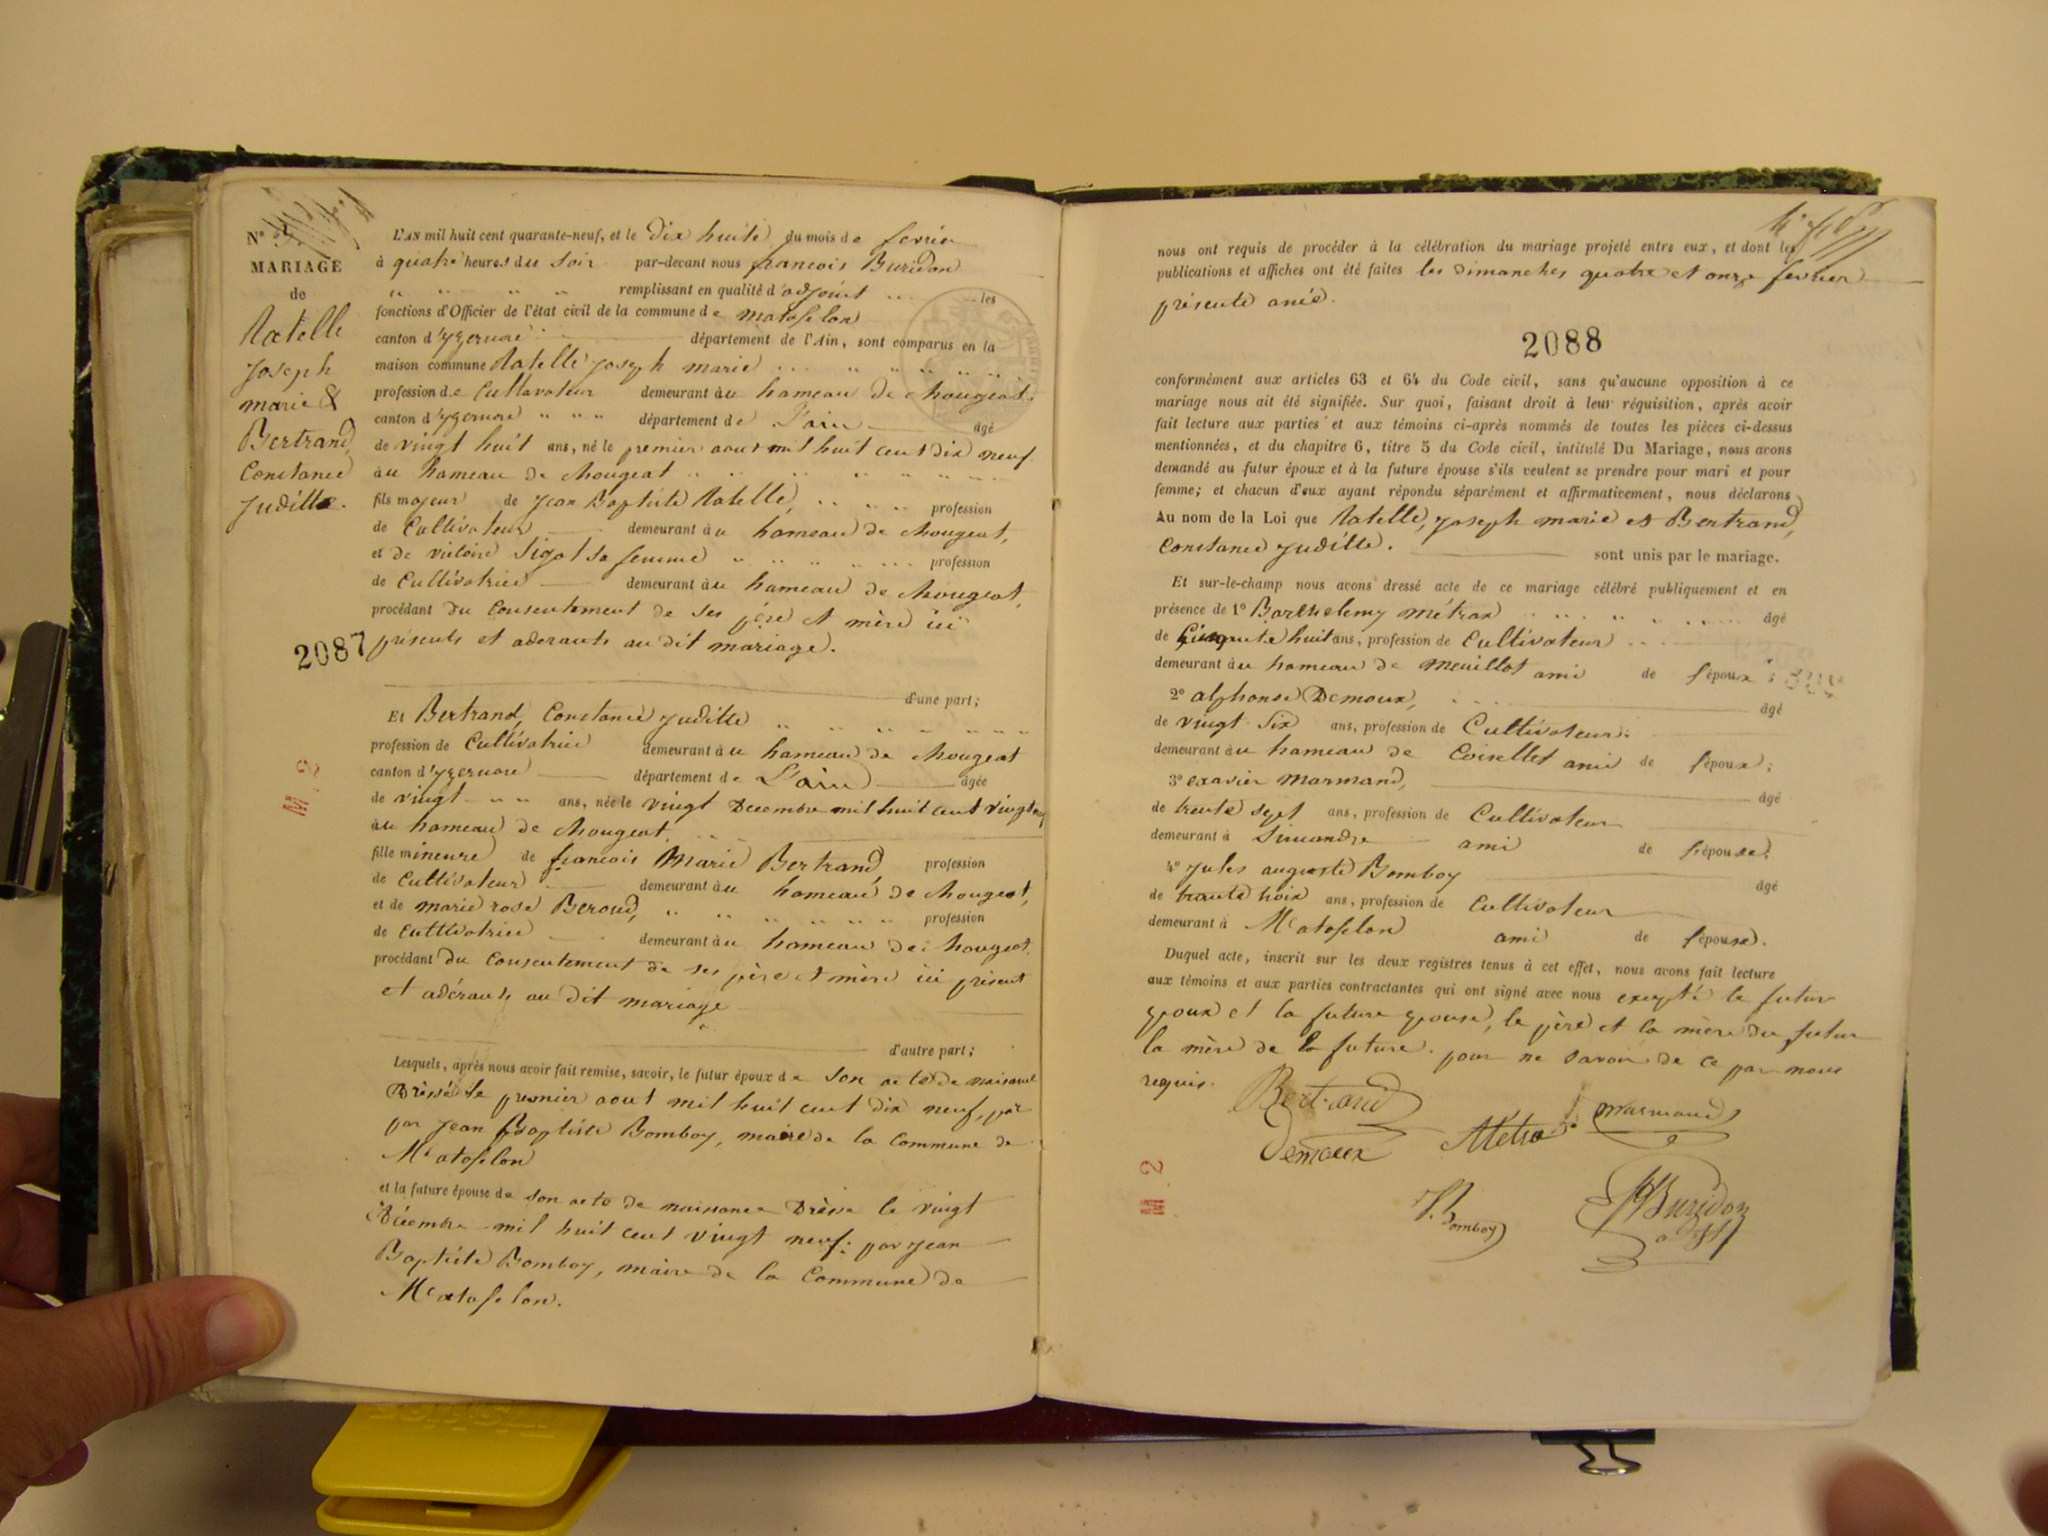 N° 3
MARIAGE
de
Ratelle
Joseph
marie &
Bertrand,
Constance
Juditte.
L'AN mil huit cent quarante-neuf, et le dix huite du mois de fevrier
à quatre heures du soir par-devant nous francois Buridon
remplissant en qualité d'adjoint les
fonctions d'Officier de l'état civil de la commune de matafelon
canton d'yzernore département de l'Ain, sont comparus en la
maison commune Ratelle Joseph marie
profession de Cultavateur demeurant àu hameau de Chougeat,
canton d'yzernore département de L'ain âgé
de vingt huit ans, né le premier aout mil huit cent dix neuf
àu hameau de chougeat
fils majeur de Jean Baptiste Ratelle, profession
de Cultivateur demeurant àu hameau de chougeat,
et de victoire Sigot sa femme profession
de Cultivatrice demeurant àu hameau de chougeat,
procédant du consentement de ses père et mère ici
2087
présents et aderants au dit mariage.
d'une part;
Et Bertrand, Constance Juditte
profession de Cultivatrice demeurant àu hameau de chougeat
canton d'yzernore département de L'ain âgée
de vingt ans, née le vingt Decembre mil huit cent vingt neuf
àu hameau de chougeat
fille mineure de francois Marie Bertrand profession
de Cultivateur demeurant àu hameau de chougeat,
et de marie rose Beroud, profession
de Cultivatrice demeurant àu hameau de chougeat.
procédant du consentement de ses père et mère ici présent
et adérants au dit mariage
M. 2
d'autre part;
Lesquels, après nous avoir fait remise, savoir, le futur époux de son acte de naisance
Drèsé le premier aout mil huit cent dix neuf, par
par Jean Baptiste Bomboy, maire de la Commune de
Matafelon
et la future épouse de son acte de naisance Drèsé le vingt
Décembre mil huit cent vingt neuf; par Jean
Baptiste Bomboy, maire de la Commune de
Matafelon.
nous ont requis de procéder à la célébration du mariage projeté entre eux, et dont les
publications et affiches ont été faites les dimanches quatre et onze fevrier
présente anée.
2088
conformément aux articles 63 et 64 du Code civil, sans qu'aucune opposition à ce
mariage nous ait été signifiée. Sur quoi, faisant droit à leur réquisition, après avoir
fait lecture aux parties et aux témoins ci-après nommés de toutes les pièces ci-dessus
mentionnées, et du chapitre 6, titre 5 du Code civil, intitulé Du Mariage, nous avons
demandé au futur époux et à la future épouse s'ils veulent se prendre pour mari et pour
femme; et chacun d'eux ayant répondu séparément et affirmativement, nous déclarons
Au nom de la Loi que Ratelle, Joseph marie et Bertrand,
Constance Juditte. sont unis par le mariage.
Et sur-le-champ nous avons dressé acte de ce mariage célébré publiquement et en
présence de 1° Barthelemy Métrax âgé
de Cinquente huit ans, profession de Cultivateur
demeurant àu hameau de meuillat ami de l'époux;
2° alphonse Demoux, âgé
de vingt Six ans, profession de Cultivateur.
demeurant àu hameau de Coisellet ami de l'époux;
3° exavier Marmand, âgé
de trente sept ans, profession de Cultivateur
demeurant à Simandre ami de l'épouse;
4° Jules auguste Bomboy âgé
de trante trois ans, profession de Cultivateur
demeurant à Matafelon ami de l'épouse.
Duquel acte, inscrit sur les deux registres tenus à cet effet, nous avons fait lecture
aux témoins et aux parties contractantes qui ont signé avec nous exepté le futur
epoux et la future epouse, le père et la mère du futur
la mère de la future. pour ne savoir de ce par nous
requis.
Bertrand
Demoux Métra Marmand
J. Bomboy Buridon
adjt
M. 2